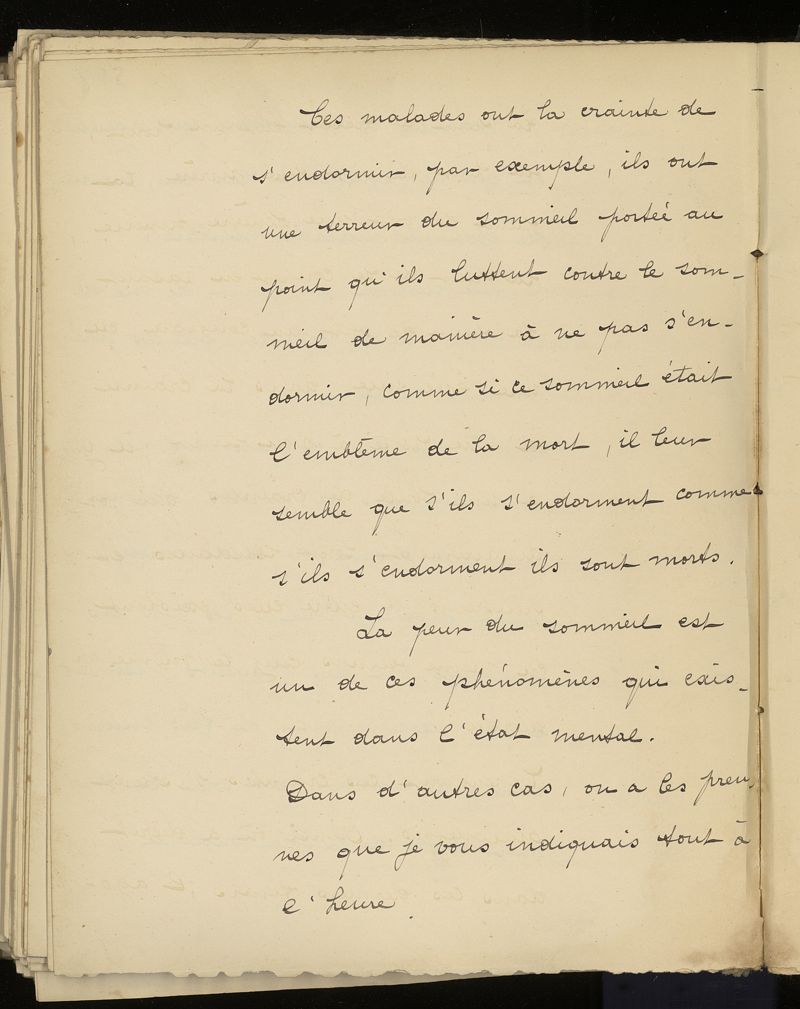 Ces malades ont la crainte de
s'endormir, par exemple, ils ont
une terreur du sommeil portée au
point qu'ils luttent contre le som-
meil de manière à ne pas s'en-
dormir, comme si ce sommeil était
l'emblème de la mort, il leur
semble que s'ils s'endorment comme
s'ils s'endorment ils sont morts.
La peur du sommeil est
un de ces phénomènes qui exis-
tent dans l'état mental.
Dans d'autres cas, on a les preu-
ves que je vous indiquais tout à
l'heure.